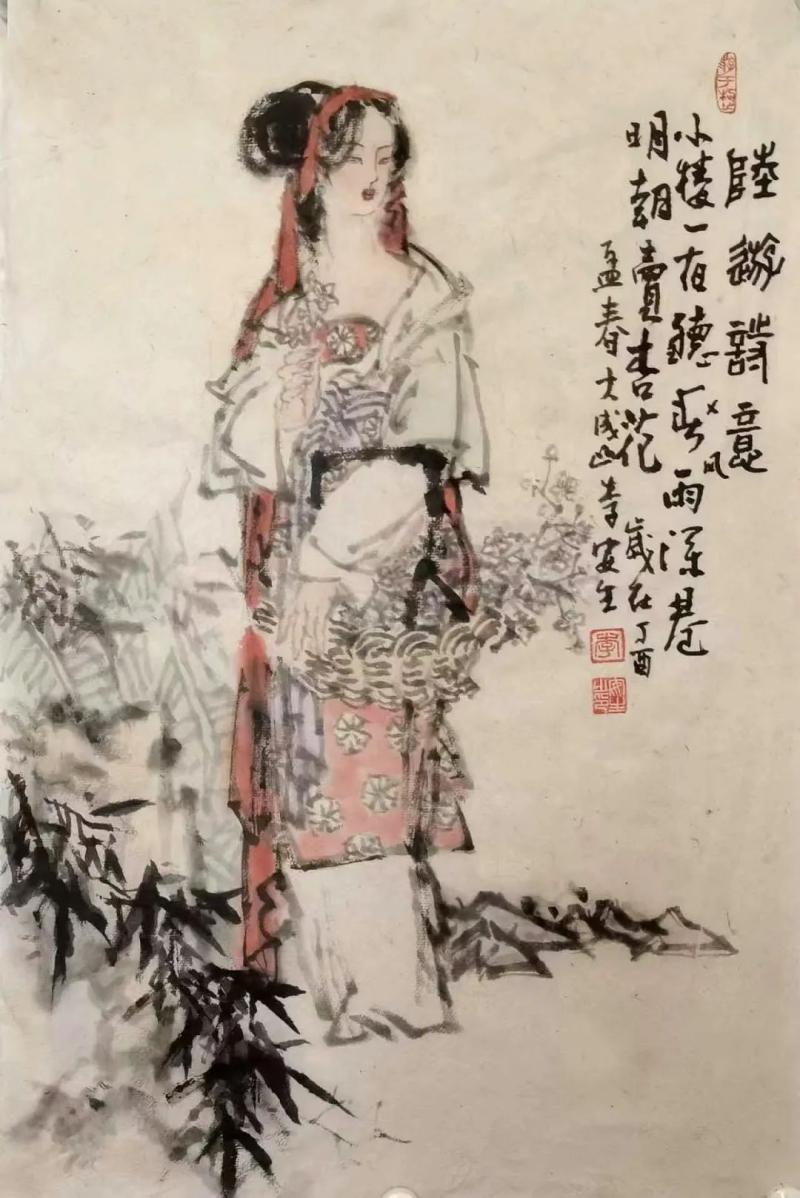 陸游詩意
小樓一夜聽春风雨深巷
明朝賣杏花 歲在丁酉
孟春大成山李安生
李